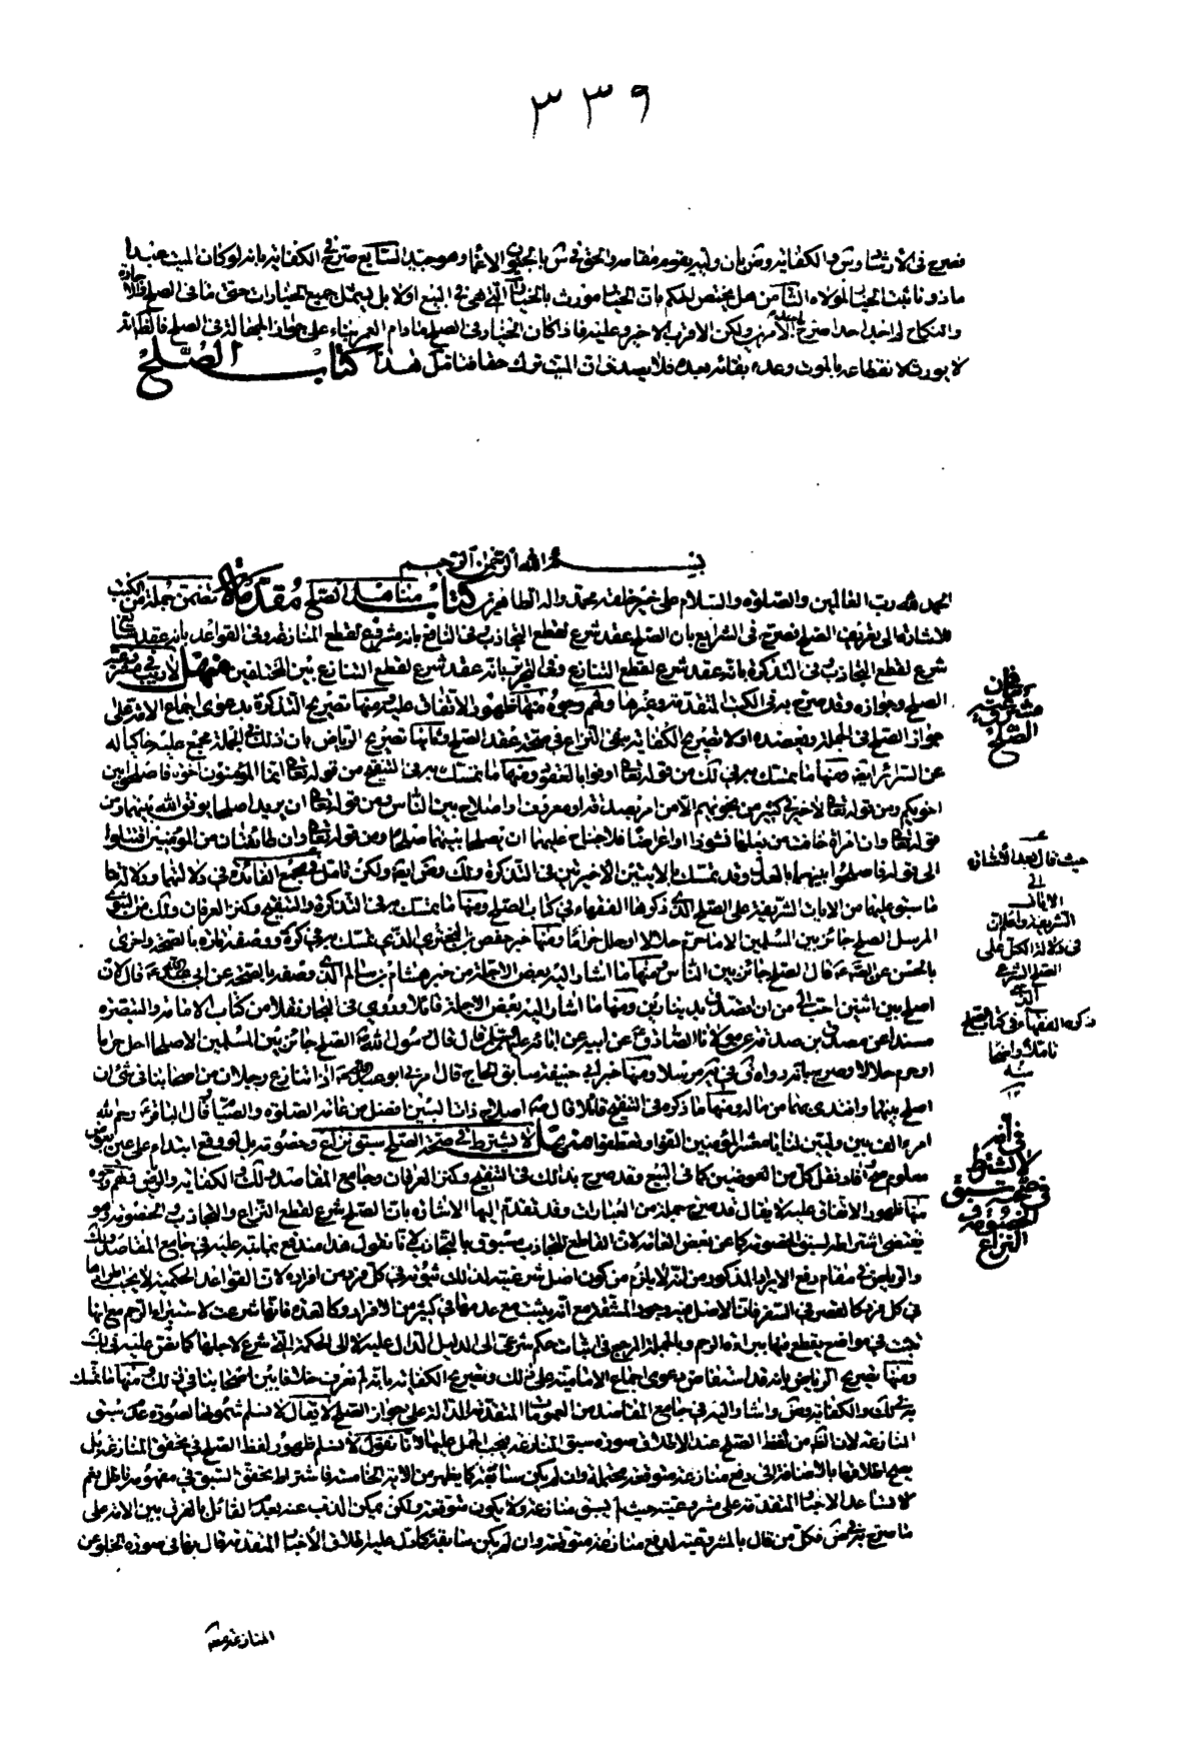 ٣٣٩
فصرح فى الارشاد وش والكفاية وض بان وليه يقوم مقامه والحق فى ش بالمجنون الاغماء وهو جيد السابع صرح فى الكفاية بانه لو كان الميت عبدا
ماذونا ثبت الخيار لمولاه الثامن هل يختص الحكم بان الخيار مورث بالخيارات التى هى فى البيع او لا بل يشمل جميع الخيارات حتى ما فى الصلح والاجارة
والنكاح لم اجد احدا صرح باحد الامرين ولكن الاقرب الاخير وعليه فاذا كان الخيار فى الصلح مادام العمر بناء على جواز الجهالة فى الصلح فالظاهر انه
لا يورث لانقطاعه بالموت وعدم بقائه بعده فلا يصدق ان الميت ترك حقا فتامل هذا كتاب الصلح
بسم الله الرحمن الرحيم
الحمد لله رب العالمين والصلوة والسلام على خير خلقه محمد واله الطاهرين كتاب مناهل الصلح مقدمة لا تتضمن جملة من الكتب
للاشارة الى تعريف الصلح فصرح فى الشرايع بان الصلح عقد شرع لقطع التجاذب فى النافع بانه مشروع لقطع المنازعة وفى القواعد بانه عقد سايغ
شرع لقطع التجاذب فى التذكرة بانه عقد شرع لقطع التنازع وفى التحرير بانه عقد شرع لقطع التنازع بين المختلفين منهل لا ريب فى مشروعية
الصلح وجوازه وقد صرح به فى الكتب المتقدمة وغيرها ولهم وجوه منها ظهور الاتفاق عليه ومنها تصريح التذكرة بدعوى اجماع الامة على
جواز الصلح فى الجملة ويعضده اولا تصريح الكفاية بنفى النزاع فى صحة عقد الصلح وثانيا تصريح الرياض بان ذلك فى الجملة مجمع عليه حاكيا له
عن السرائر ايضا ومنها ما تمسك به فى لك من قوله تعالى اوفوا بالعقود ومنها ما تمسك به فى التنقيح من قوله تعالى انما المؤمنون اخوة فاصلحوا بين
اخويكم ومن قوله تعالى لا خير فى كثير من نجويهم الا من امر بصدقة او معروف او اصلاح بين الناس ومن قوله تعالى ان يريدا اصلاحا يوفق الله بينهما ومن
قوله تعالى وان امراة خافت من بعلها نشوزا او اعراضا فلا جناح عليهما ان يصلحا بينهما صلحا ومن قوله تعالى وان طائفتان من المؤمنين اقتتلوا
الى قوله فاصلحوا بينهما بالعدل وقد تمسك بالايتين الاخيرتين فى التذكرة ولك وض ايضا ولكن تامل فى مجمع الفائدة فى دلالتهما ودلالة
ما سويهما من الايات الشريفة على الصلح الذى ذكروها الفقهاء فى كتاب الصلح ومنها ما تمسك به فى التذكرة والتنقيح وكنز العرفان ولك من النبوى
المرسل الصلح جائز بين المسلمين الا ما حرم حلالا او حلل حراما ومنها خبر حفص بن البخترى الذى تمسك به فى كرة ووصفه تارة بالصحة واخرى
بالحسن عن الصادق ع قال الصلح جائز بين الناس ومنها ما اشار اليه بعض الاجلة من خبر هشام بن سالم الذى وصفه بالصحة عن ابى عبد الله ع قال لان
اصلح بين اثنين احب الى من ان اتصدق بدينارين ومنها ما اشار اليه بعض الاجلة قائلا وروى فى البحار نقلا من كتاب الامامة والتبصرة
مسندا عن مصدق بن صدقة عن مولانا الصادق ع عن ابيه عن ابائه عليهم السلام قال قال رسول الله ص الصلح جائز بين المسلمين الا صلحا احل حراما
او حرم حلالا وصرح بانه رواه فى مرسلا ومنها خبر ابى حنيفة سابق الحاج قال مر بى ابو عبد الله ع اذا تنازع رجلان من اصحابنا فى شئ ان
اصلح بينهما وافتدى بهما من ماله ومنها ما ذكره فى التنقيح قائلا قال ص اصلاح ذات البين افضل من عامة الصلوة والصيام قال الباقر ع رحم الله
امرء الف بين وليين لنا يا معشر المؤمنين تالفوا وتعاطفوا منهل لا يشترط فى صحة الصلح سبق نزاع وخصومة بل لو وقع ابتداء على عين بعوض
معلوم صح فافاد نقل كل من العوضين كما فى البيع وقد صرح بذلك فى التنقيح وكنز العرفان وجامع المقاصد ولك والكفاية والرياض ولهم وجوه
منها ظهور الاتفاق عليه لا يقال قد صرح جملة من العبارات وقد تقدم اليها الاشارة بان الصلح شرع لقطع النزاع والتجاذب والخصومة وهو
يقتضى اشتراطه بسبق الخصومة كما عن بعض العامة لان القاطع للتجاذب مسبوق بالتجاذب لانا نقول هذا مندفع بما نبه عليه فى جامع المقاصد ولك
والرياض فى مقام دفع الايراد المذكور من انه لا يلزم من كون اصل شرعيته لذلك ثبوته فى كل فرد من افراده لان القواعد الحكمية لا يجب اطرادها
فى كل فرد كالقصر فى السفر فان الاصل فيه وجود المشقة مع انه يثبت مع عدمها فى كثير من الافراد وكالعدة فانها شرعت لاستبراء الرحم مع انها
تجب فى مواضع يقطع فيها ببراءة الرحم وبالجملة المرجع فى اثبات حكم شرعى الى الدليل الدال عليه لا الى الحكمة التى شرع لاجلها كما نص عليه فى لك
ومنها تصريح الرياض بانه قد استفاض دعوى اجماع الامامية على ذلك وتصريح الكفاية بانه لم نعرف خلافا بين اصحابنا فى ذلك ومنها ما تمسك
به فى لك والكفاية وض واشار اليه فى جامع المقاصد من العمومات المتقدمة الدالة على جواز الصلح لا يقال لا نسلم شمولها لصورة عدم سبق
المنازعة لان الظاهر من لفظ الصلح عند الاطلاق صورة سبق المنازعة فيجب الحمل عليها لانا نقول لا نسلم ظهور لفظ الصلح فى تحقق المنازعة بل
يصح اطلاقها بالاضافة الى دفع منازعة متوقعة محتملة وان لم يكن سابقة كما يظهر من الاية الخامسة فاشتراط تحقق السبق فى مفهومه باطل نعم
لا يساعد الاخبار المتقدمة على مشروعيته حيث لم يسبق منازعة ولا يكون متوقعة ولكن يمكن الذب عنه بعدم القائل بالفرق بين الامة على
ما صرح به فى ض فكل من قال بالمشروعية لدفع منازعة متوقعة وان لم يكن سابقة كما دل عليه اطلاق الاخبار المتقدمة قال بها فى صورة الخلو عن
المنازعة معه
فى ان
مشروعية
الصلح
حيث قال بعد الاشارة
الى
الايات
الشريفة واعلم ان
فى دلالة الكل على
الصلح الشرعى
الذى
ذكره الفقهاء فى كتاب الصلح
تاملا واضحا
منه
فى امر
لا يشترط
فى صحته سبق
الخصومة و
النزاع